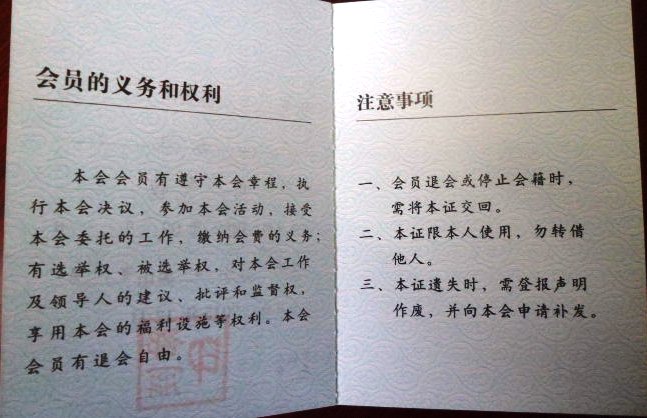 会员的义务和权利
本会会员有遵守本会章程，执
行本会决议，参加本会活动，接受
本会委托的工作，缴纳会费的义务；
有选举权、被选举权，对本会工作
及领导人的建议、批评和监督权，
享用本会的福利设施等权利。本会
会员有退会自由。
注意事项
一、会员退会或停止会籍时，
需将本证交回。
二、本证限本人使用，勿转借
他人。
三、本证遗失时，需登报声明
作废，并向本会申请补发。